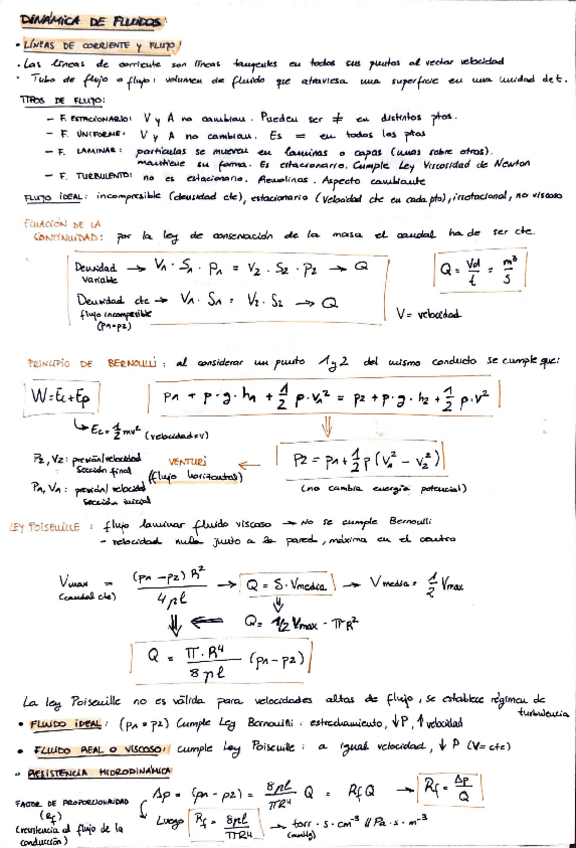 DINÁMICA DE FLUIDOS:
• LÍNEAS DE CORRIENTE Y FLUJO:
• Las líneas de corriente son líneas tangentes en todos sus puntos al vector velocidad
• Tubo de flujo o flujo: volumen de fluido que atraviesa una superficie en una unidad de t.
TIPOS DE FLUJO:
– F. ESTACIONARIO: V y A no cambian. Pueden ser ≠ en distintos ptos.
– F. UNIFORME: V y A no cambian. Es = en todos los ptos
– F. LAMINAR: partículas se mueven en láminas o capas (unas sobre otras).
mantiene su forma. Es estacionario. Cumple Ley Viscosidad de Newton
– F. TURBULENTO: no es estacionario. Remolinos. Aspecto cambiante
FLUJO IDEAL: incompresible (densidad cte), estacionario (velocidad cte en cada pto), irrotacional, no viscoso
ECUACIÓN DE LA
CONTINUIDAD: por la ley de conservación de la masa el caudal ha de ser cte.
Densidad variable → V1 · S1 · ρ1 = V2 · S2 · ρ2 → Q
Densidad cte → V1 · S1 = V2 · S2 → Q
flujo incompresible
(ρ1=ρ2)
Q = Vol/t = m³/s
V = velocidad
PRINCIPIO DE BERNOULLI: al considerar un punto 1 y 2 del mismo conducto se cumple que:
W = Ec + Ep
p1 + ρ · g · h1 + 1/2 ρ · v1² = p2 + ρ · g · h2 + 1/2 ρ · v²
↳ Ec = 1/2 mv² (velocidad = v)
P2, V2: presión/velocidad
sección final
P1, V1: presión/velocidad
sección inicial
VENTURI ←
(flujo horizontal)
P2 = p1 + 1/2 ρ (v1² – v2²)
(no cambia energía potencial)
LEY POISEUILLE: flujo laminar fluido viscoso → No se cumple Bernoulli
– velocidad nula junto a la pared, máxima en el centro
Vmax = (p1 – p2) R² / 4 µl → Q = S · Vmedia → Vmedia = 1/2 Vmax
(caudal cte)
⇓ ⇐ Q = 1/2 Vmax · πR²
Q = π · R⁴ / 8 µl (p1 – p2)
La ley Poiseuille no es válida para velocidades altas de flujo, se establece régimen de
turbulencia
• FLUIDO IDEAL: (p1 = p2) Cumple Ley Bernoulli: estrechamiento, ↓P, ↑velocidad
• FLUIDO REAL O VISCOSO: cumple Ley Poiseuille: a igual velocidad, ↓ P (V = cte)
• RESISTENCIA HIDRODINÁMICA
FACTOR DE PROPORCIONALIDAD
(Rf)
(resistencia al flujo de la
conducción)
Δp = (p1 – p2) = 8µl / πR⁴ Q = Rf Q → Rf = Δp / Q
Luego Rf = 8µl / πR⁴ → torr · s · cm⁻³ // Pa · s · m⁻³
(mmHg)